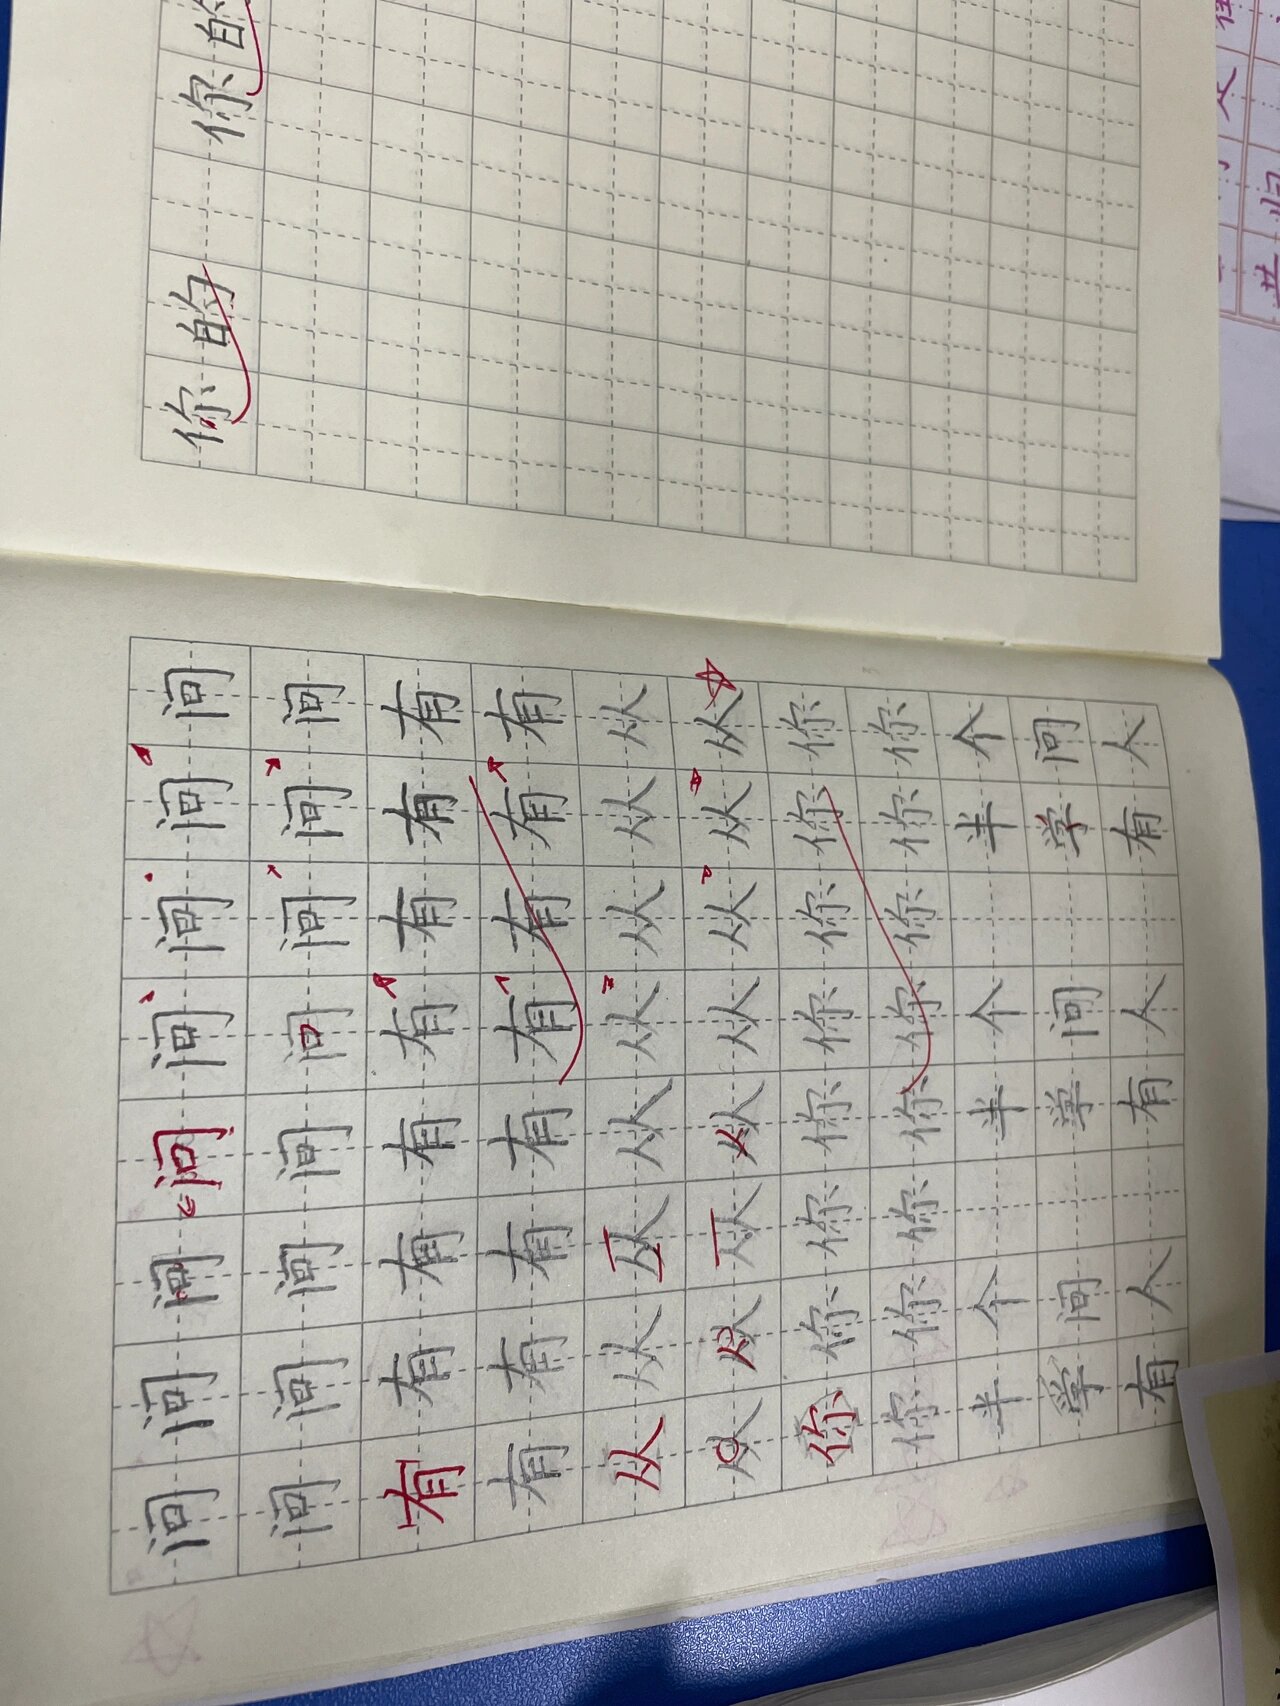 问问问问问问问问
问问问问问问问问
有有有有有有有有
有有有有有有有有
从从从从从从从从
从从从从从从从从
你你你你你你你你
你你你你你你你你
半个 半个 半个
学问 学问 学问
有人 有人 有人
你的 你的